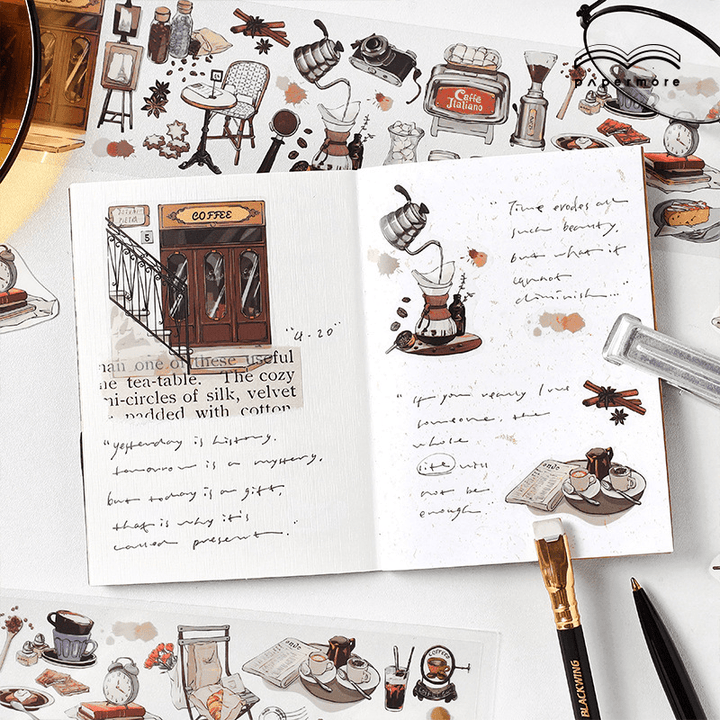 papermore
Caffe
Italiano
COFFEE
5
"4-20"
man one of these useful
he tea-table. The cozy
mi-circles of silk, velvet
padded with cotton
"yesterday is history.
tomorrow is a mystery.
but today is a gift,
that is why it's
called present."
"Time erodes all
such beauty,
but what it
cannot
diminish..."
"If you really love
someone, the
whole
life will
not be
enough.
BLACKWING
COFFEE